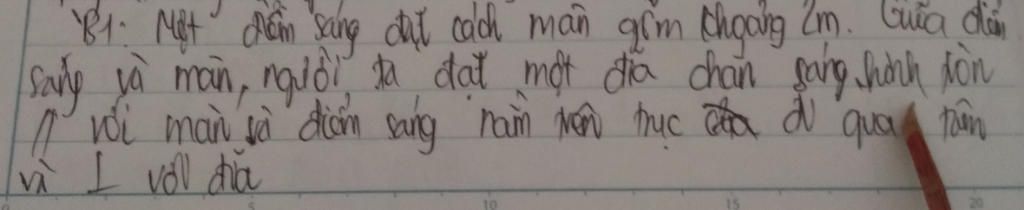 B1: Một điểm sáng đặt cách màn 1 khoảng 2m. Giữa điểm
sáng và màn, người ta đặt một đĩa chắn sáng hình tròn
// với màn và điểm sáng nằm trên trục đi qua tâm
và ⊥ với đĩa
5 10 15 20